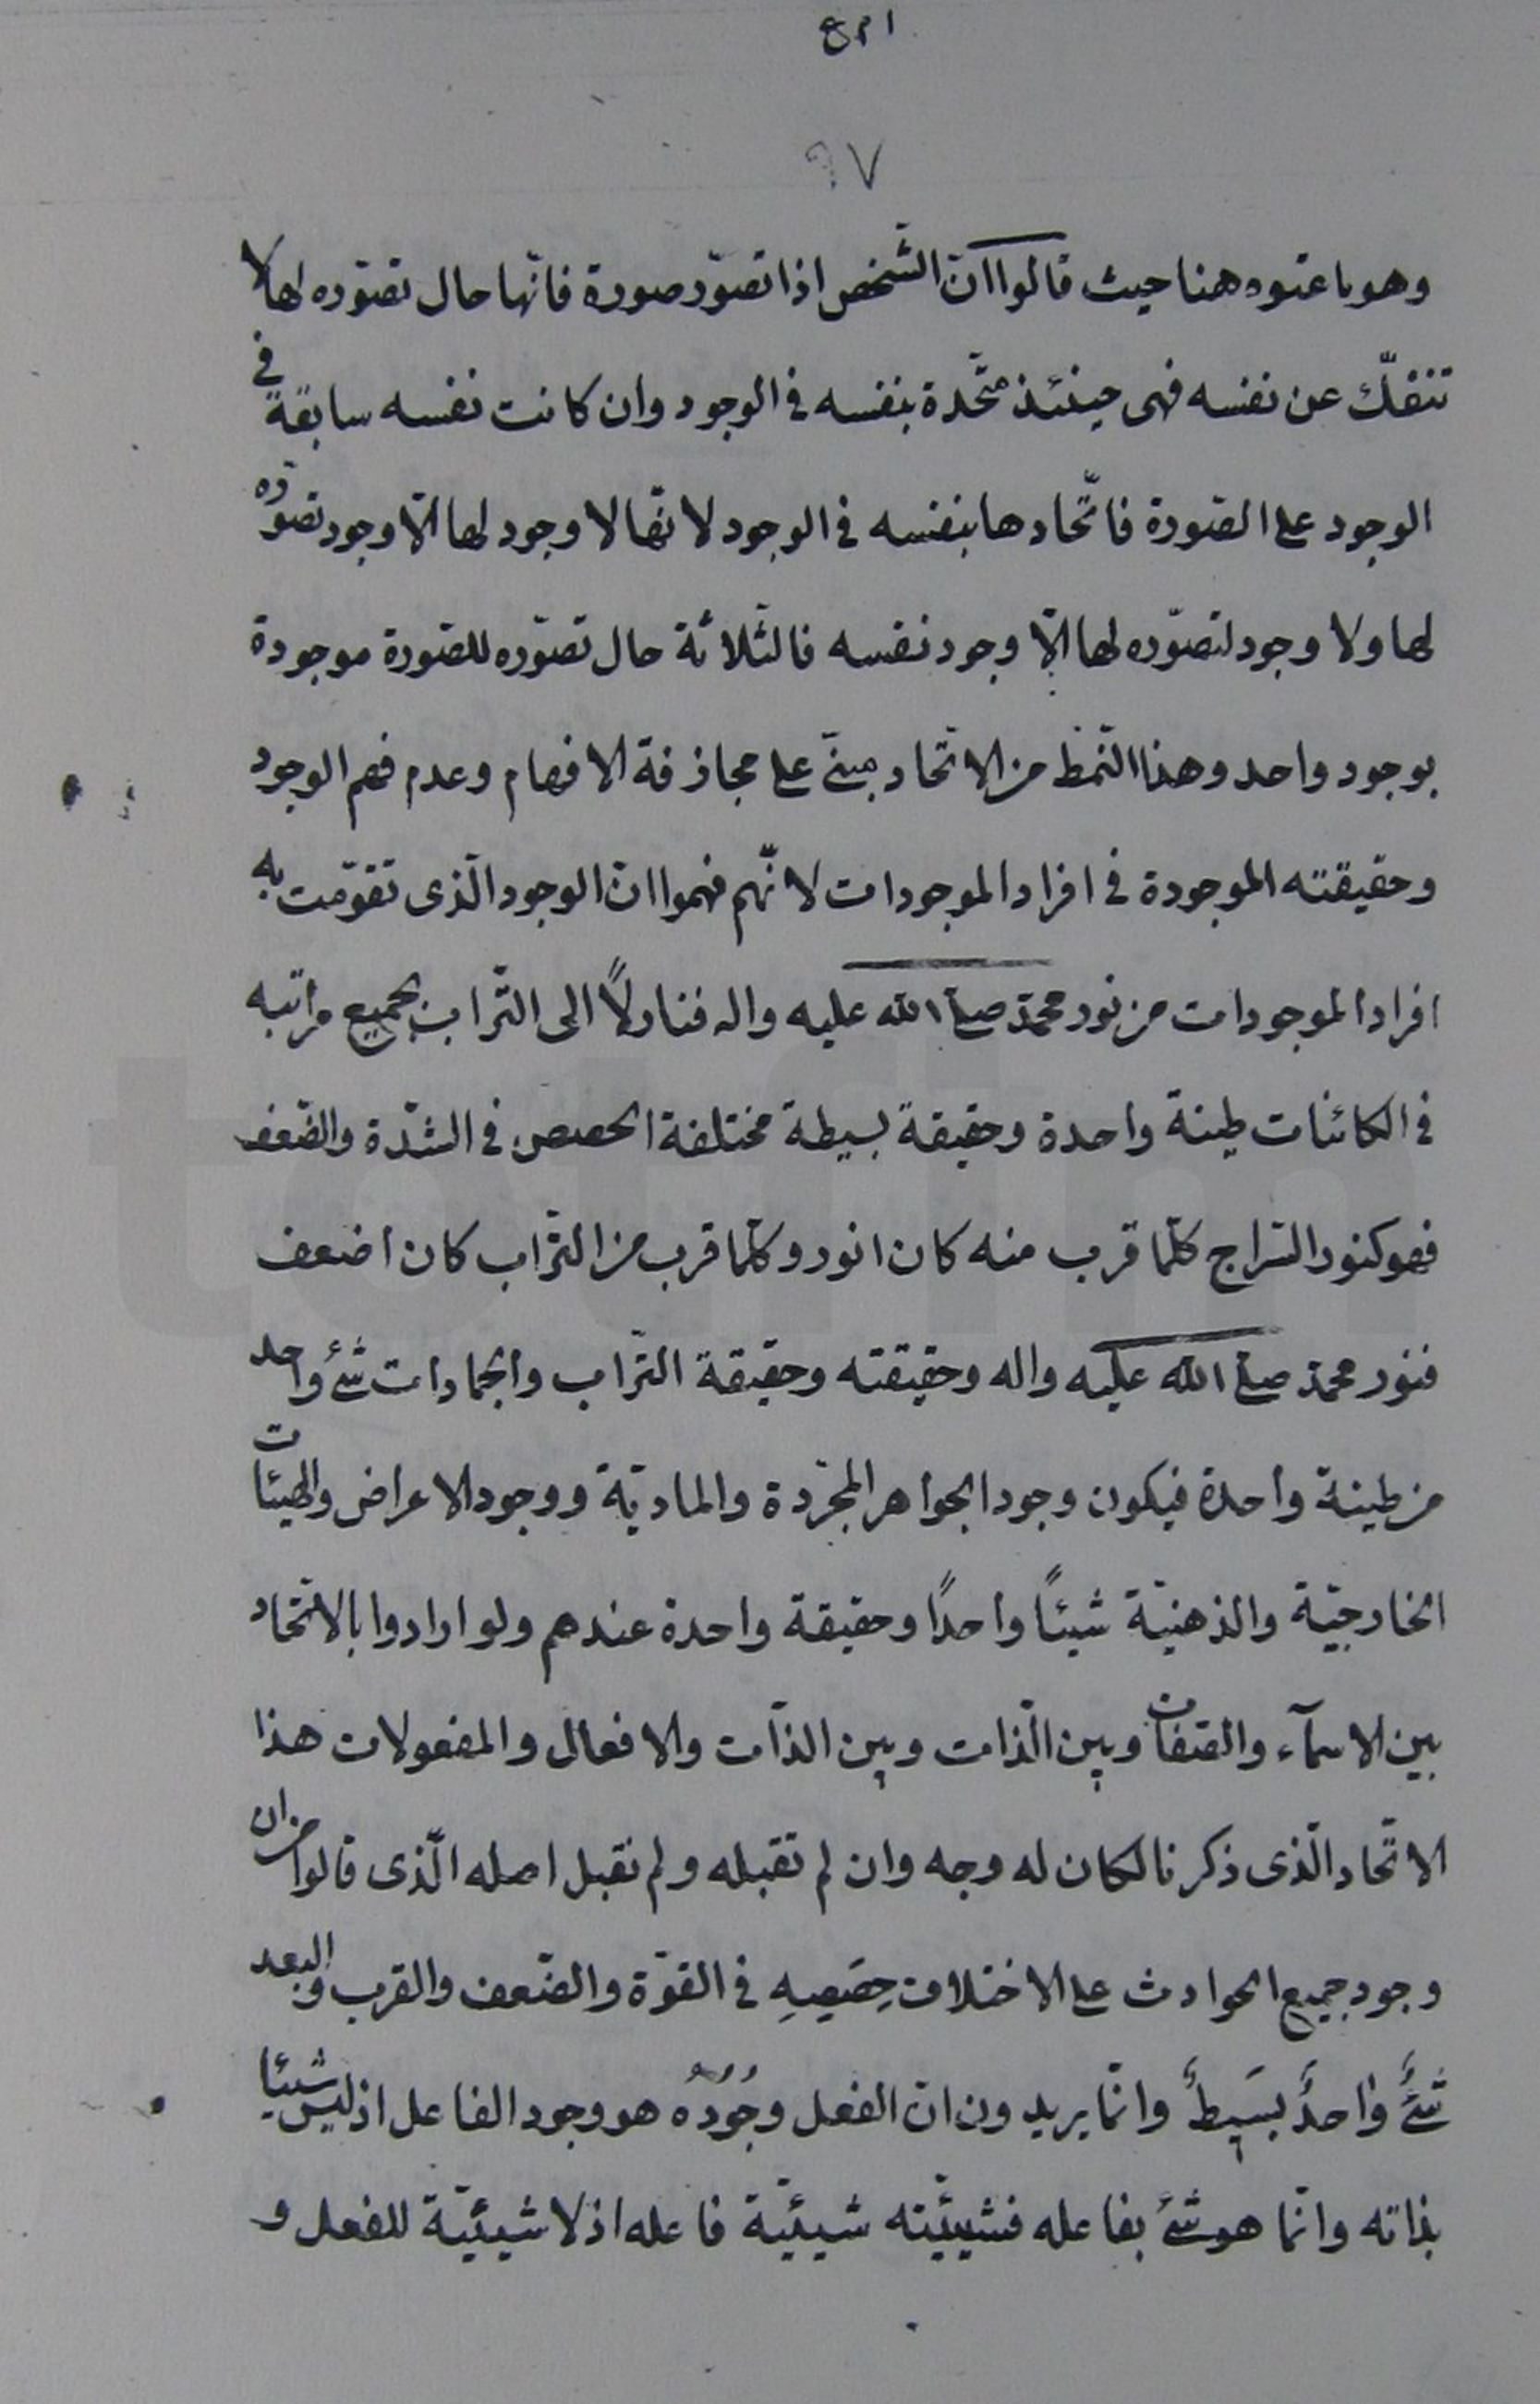 ٩٧
وهو ما عنوه هنا حيث قالوا انّ الشّخص اذا تصوّر صورة فانّها حال تصوّره لها لا
تنفكّ عن نفسه فهى حينئذ متّحدة بنفسه فى الوجود وان كانت نفسه سابقة فى
الوجود على الصّورة فاتّحادها بنفسه فى الوجود لانّها لا وجود لها الّا وجود تصوّره
لها ولا وجود لتصوّره لها الّا وجود نفسه فالثّلاثة حال تصوّره للصّورة موجودة
بوجود واحد وهذا النّمط من الاتّحاد مبنىّ على مجازفة الافهام وعدم فهم الوجود
وحقيقته الموجودة فى افراد الموجودات لانّهم فهموا انّ الوجود الّذى تقوّمت به
افراد الموجودات من نور محمّد صلى الله عليه واله فنازلاً الى التّراب بجميع مراتبه
فى الكائنات طينة واحدة وحقيقة بسيطة مختلفة الحصص فى الشّدّة والضّعف
فهو كنور السّراج كلّما قرب منه كان انور وكلّما قرب من التّراب كان اضعف
فنور محمّد صلى الله عليه واله وحقيقته وحقيقة التّراب والجمادات شئ واحد
من طينة واحدة فيكون وجود الجواهر المجرّدة والماديّة ووجود الاعراض والهيئات
الخارجيّة والذهنيّة شيئاً واحدًا وحقيقة واحدة عندهم ولو ارادوا بالاتّحاد
بين الاسمآء والصّفات وبين الذّات وبين الذّات والافعال والمفعولات هذا
الاتّحاد الّذى ذكرنا لكان له وجه وان لم نقبله ولم نقبل اصله الّذى قالوا من ان
وجود جميع الحوادث على الاختلاف حِصَصِهِ فى القوّة والضّعف والقرب والبعد
شئٌ واحدٌ بسيطٌ وانّما يريدون انّ الفعل وجُودُهُ هو وجود الفاعل اذ ليس شيئا
بذاته وانّما هو شئ بفاعله فشيئيّته شيئيّة فاعله اذ لا شيئيّة للفعل و